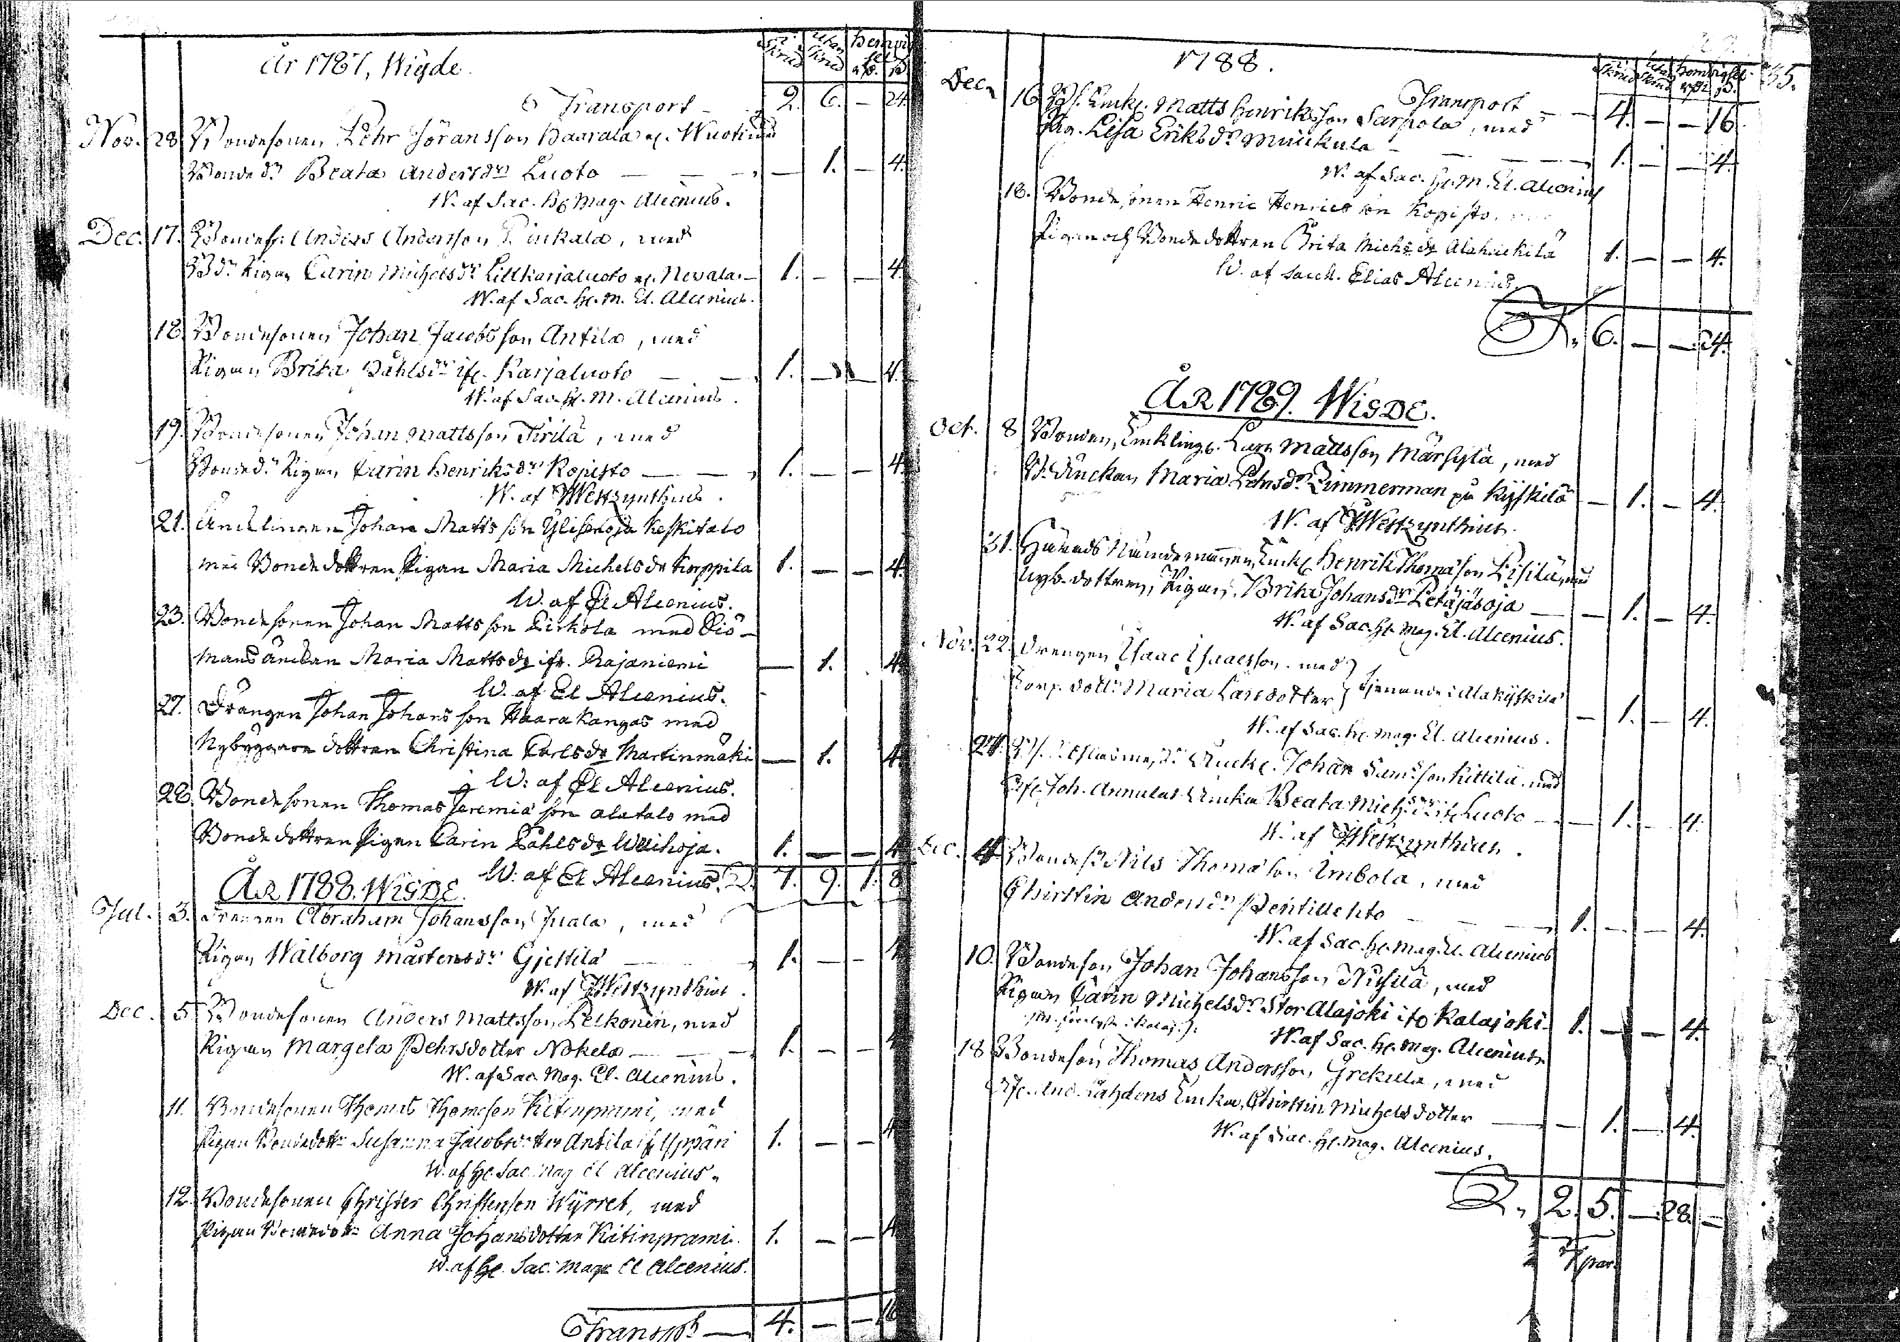 År 1787, Wigde.
i Skrud utan Skrud
Transport — 2. 6. — 24.
Nov. 28. Bondesonen Pehr Jöransson Haarala
Bonded:r Beata Andersdr Luoto — — 1. — 4.
W. af Sac. H. Mag. Alcenius.
Dec. 17. Bondes. Anders Andersson Pinkala, med
Bdr. Pigan Carin Michelsdr Lillkarjaluoto Nevala. — 1. — — 4.
W. af Sac. H. M. El. Alcenius.
18. Bondesonen Johan Jacobsson Antila, med
Pigan Brita Påhlsdr ifr. Karjaluoto — — 1. — — 4.
W. af Sac. H. M. Alcenius.
19. Bondesonen Johan Mattsson Tirilä, med
Bonded:r Pigan Carin Henriksdr Kopisto — — 1. — — 4.
W. af Westzynthius.
21. Änklingen Johan Matts son Ylisenoja Keskitalo
med Bonde dottren Pigan Maria Michels dr Korppila 1. — — 4.
W. af El Alcenius.
23. Bonde sonen Johan Matts son Pirkola med
mans änkan Maria Matts dr ifr. Rajaniemi — 1. 4.
W. af El Alcenius.
27. Drängen Johan Johans son Haarakangas med
Nybyggare dottren Christina Carls dr Martinmäki — 1. 4.
W. af El Alcenius.
28. Bonde sonen Thomas Jeremiæ son alatalo med
Bonde dottren Pigan Carin Påhls dr Waihoja. 1. — — 4.
W. af El Alcenius. 7. 9. 1. 8
ÅR 1788. WIGDE.
Jul. 3. Drengen Abraham Johansson Juala, med
Pigan Walborg Mårtensdr Gjettilä — 1. — — 4
W. af Westzynthius.
Dec. 5. Bondesonen Anders Mattsson Pelkonen, med
Pigan Margeta Pehrsdotter Nokela — — 1. — — 4
W. af Sac. Mag. El. Alcenius.
11. Bondesonen Thomas Thomæson Kitinprami, med
Pigan Bondedottr Susanna Jacobsdotter Antila if Yppäri 1. — — 4
W. af H. Sac. Mag El Alcenius.
12. Bondesonen Christer Christerson Wyrret, med
Pigan Bondedottr Anna Johansdotter Kitinprami. 1. — — 4
W. af H. Sac. Mag. El Alcenius.
Transport — 4. — — 16
1788.
55.
Transport — 4. — — 16.
Dec. 16. Bs. Enkl. Matts Henriksson Sarpola, med
Pig. Lisa Eriksdr Muukula — — 1. — — 4.
W. af Sac. H. M. El. Alcenius
18. Bonde sonen Henric Henrics son Kopisto,
Pigan och Bonde dottren Brita Michs dr Alahuikila 1. — — 4.
W. af Sacell. Elias Alcenius
6. — — 24.
ÅR 1789. WIGDE.
Oct. 8 Bonden, Enkling. Lars Mattsson Märsylä, med
B. Änckan Maria Pehrsdr Zimmerman på Kyskilä — 1. — 4.
W. af Westzynthius.
31. Härads Nämdemannen, Enkl. Henrik Thomæson Pisilä, med
Nyb. dottren, Pigan, Brita Johansdr Petäjäsoja — 1. — 4.
W. af Sac. H. Mag. El. Alcenius.
Nov. 22. Drengen Isaac Isacsson, med
dottr Maria Larsdotter tjenande i Alakyskilä — 1. — 4.
W. af Sac. H. Mag. El. Alcenius.
24. Enkl. Johan Sam:son Kittilä, med
Joh. Annulas Enka Beata Michsdr Luoto — 1. — 4.
W. af Westzynthius.
Dec. 4. Bondes:n Nils Thomæson Embola, med
Christin Andersdr Penttilehto — — 1. — — 4.
W. af Sac. H. Mag. El. Alcenius
10. Bondeson Johan Johansson Niskilä, med
Pigan Carin Michelsdr Stor Alajoki ifr Kalajoki. 1. — — 4.
W. af Sac. H. Mag. Alcenius.
18 Bondeson Thomas Andersson Grekula, med
Enka, Christin Michelsdotter — 1. — 4.
W. af Sac. H. Mag. Alcenius.
2. 5. — 28. —
7 par.